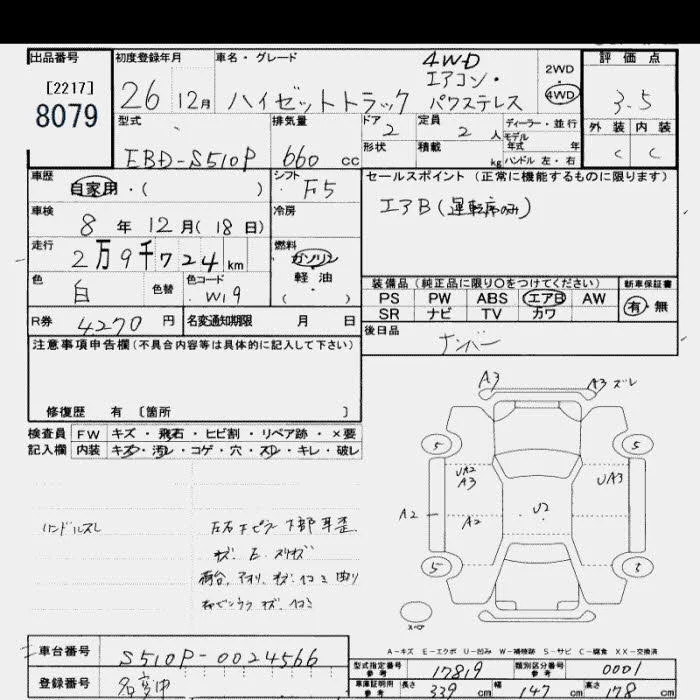 出品番号
[2217]
8079
初度登録年月
26 12月
車名・グレード
ハイゼットトラック
4WD
エアコン・
パワステレス
2WD
4WD
評価点
3.5
型式
EBD-S510P
排気量
660 cc
ドア
2
定員
2 人
ディーラー・並行
モデル
年式 年
形状
積載 kg
ハンドル 左・右
外装 内装
C C
車歴
自家用・( )
シフト
F5
セールスポイント (正常に機能するものに限ります)
エアB (運転席のみ)
車検
8 年 12 月( 18 日)
冷房
走行
2万9千724 km
燃料
ガソリン
軽・油
( )
色
白
色替
色コード
W19
装備品 (純正品に限り○をつけてください)
新車保証書
PS PW ABS エアB AW
SR ナビ TV カワ
有・無
R券
4270 円
名変通知期限 月 日
後日品
ナンバー
注意事項申告欄 (不具合内容等は具体的に記入して下さい)
修復歴 有 [箇所 ]
検査員
記入欄
FW キズ・飛石・ヒビ割・リペア跡・×要
内装 キズ・汚レ・コゲ・穴・スレ・キレ・破レ
ハンドルスレ
A3
A3 ズレ
5
5
UA2
A3
UA3
A2
A2
U2
5
5
A-キズ E-エクボ U-凹み W-補修跡 S-サビ C-腐食 XX-交換済
車台番号
S510P-0024566
登録番号
名変中
型式指定番号
参考
17819
類別区分番号
参考
0001
車庫証明用
参考
長さ 339 cm 幅 147 cm 高さ 178 cm